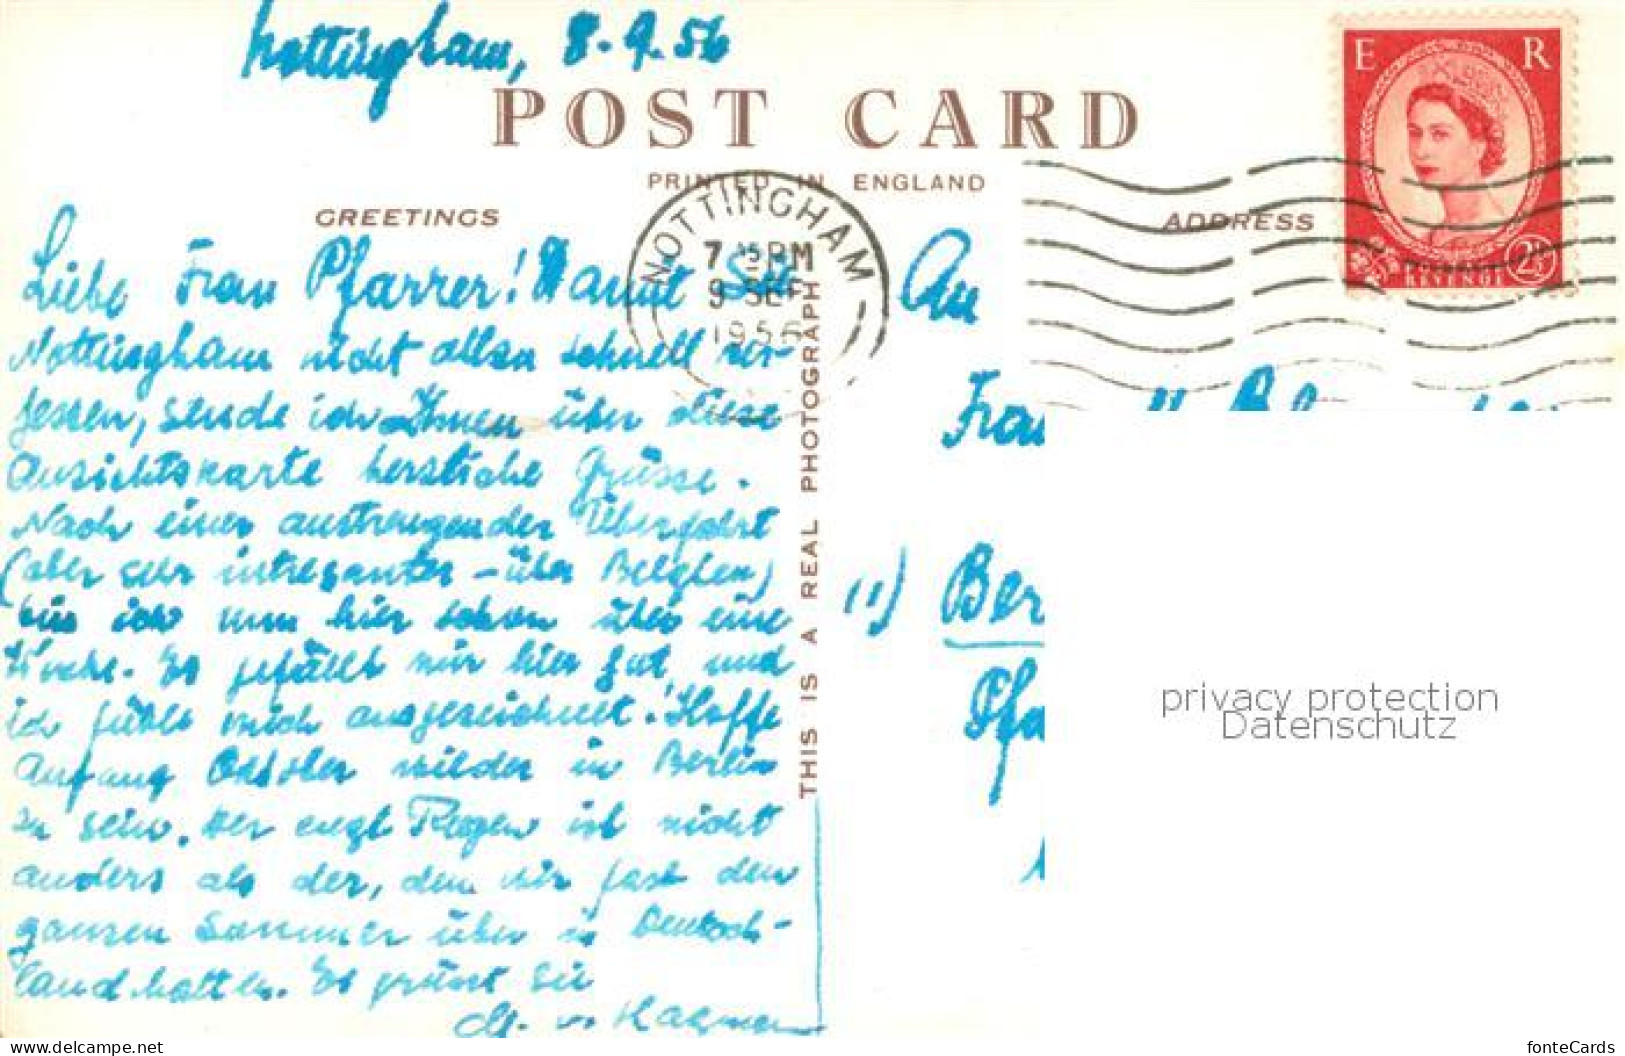 Nottingham, 8.9.56
POST CARD
PRINTED IN ENGLAND
GREETINGS
ADDRESS
E R
POSTAGE REVENUE 2½
NOTTINGHAM
7 15 PM
9 SEP
1956
Liebe Frau Pfarrer! Damit Sie
Nottingham nicht allzu schnell ver-
gessen, sende ich Ihnen über diese
Ansichtskarte herzliche Grüsse.
Nach einer anstrengender Überfahrt
(aber sehr interesanter - über Belgien)
bin ich nun hier schon über eine
Woche. Es gefällt mir hier gut und
ich fühle mich ausgezeichnet! Hoffe
Anfang Oktober wieder in Berlin
zu sein. Der engl Regen ist nicht
anders als der, den wir fast den
ganzen Sommer über in Deutsch-
land hatten. Es grüsst Sie
THIS IS A REAL PHOTOGRAPH
An
Frau
(1) Ber
Pfa
privacy protection
Datenschutz
delcampe.net
fonteCards